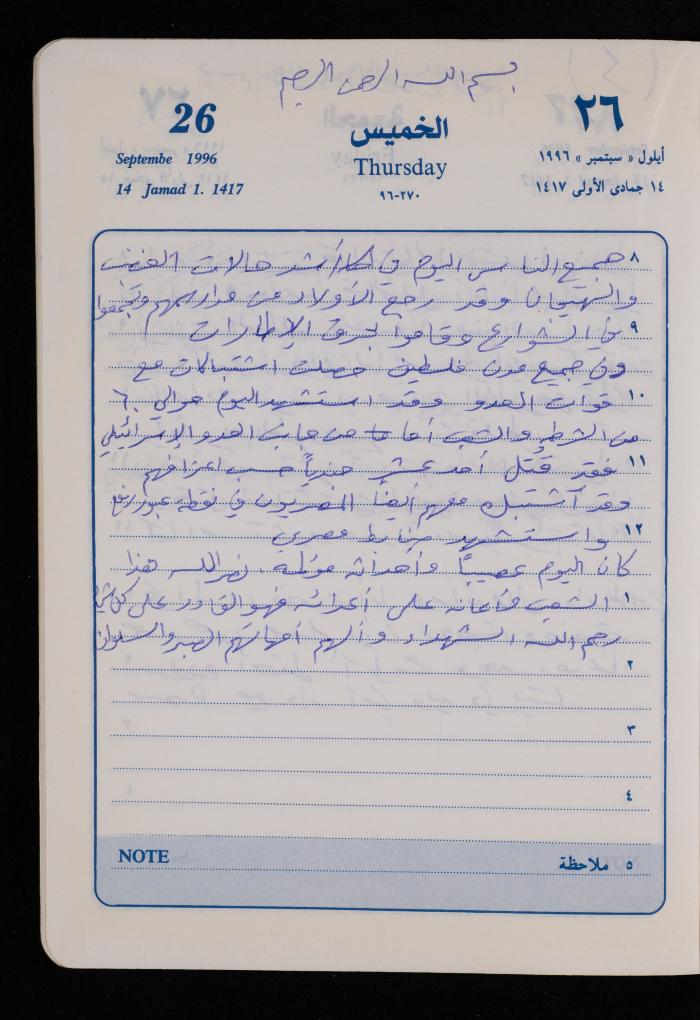 بسم الله الرحمن الرحيم
26
الخميس
٢٦
Septembe 1996
Thursday
أيلول « سبتمبر » ١٩٩٦
14 Jamad 1. 1417
٩٦-٢٧٠
١٤ جمادى الأولى ١٤١٧
٨ جميع الناس اليوم في أشد حالات الغضب
والهيجان وقد رجع الأولاد من مدارسهم وتجمعوا
٩ في الشوارع وقاموا بحرق الإطارات
وفي جميع مدن فلسطين حصلت اشتباكات مع
١٠ قوات العدو وقد استشهد اليوم حوالي ٦٠
من الشرطة والشعب أما من جانب العدو الإسرائيلي
١١ فقد قُتل أحد عشر جندياً حسب اعترافهم
وقد اشتبك معهم أيضاً المصريون في نقطة عبور رفح
١٢ واستشهد ضابط مصري
كان اليوم عصيباً وأحداثه مؤلمة. نصر الله هذا
١ الشعب وأعانه على أعدائه فهو القادر على كل شيء
رحم الله الشهداء وألهم أمهاتهم الصبر والسلوان
٢
٣
٤
NOTE
٥ ملاحظة